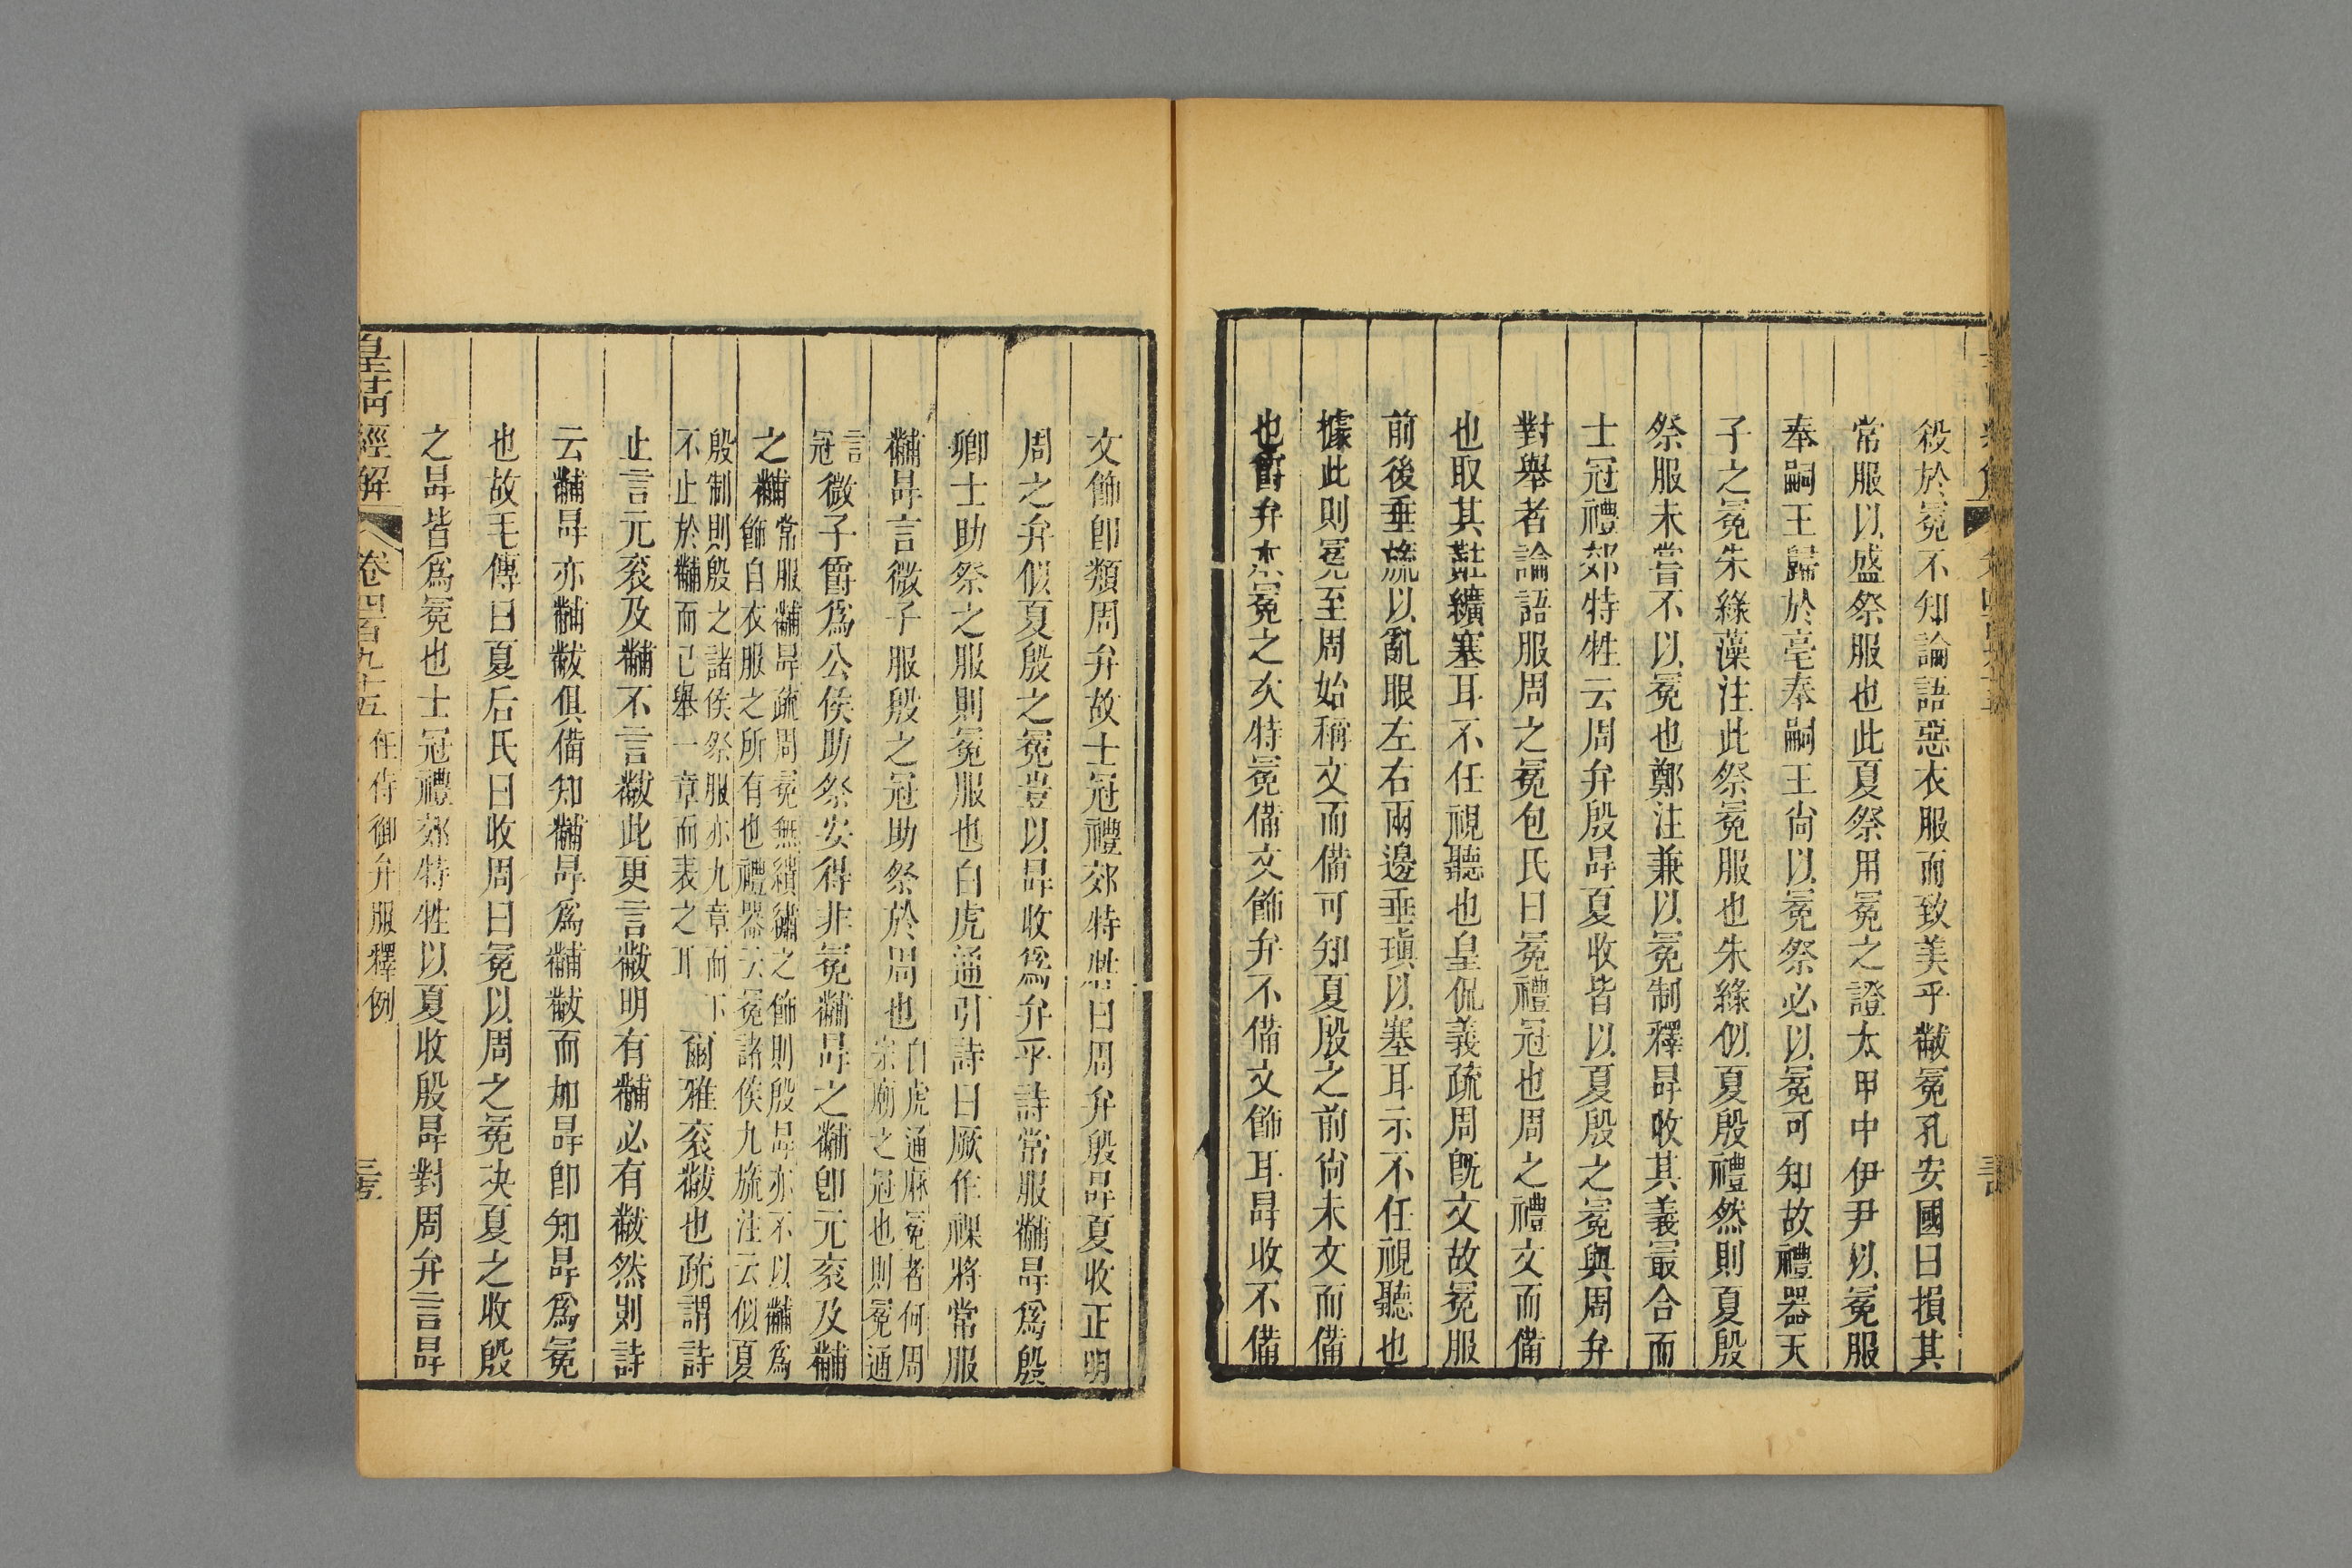 殺於冕不知論語惡衣服而致美乎黻冕孔安國曰損其
常服以盛祭服也此夏祭用冕之證太甲中伊尹以冕服
奉嗣王歸於亳奉嗣王尙以冕祭必以冕可知故禮器天
子之冕朱綠藻注此祭冕服也朱綠似夏殷禮然則夏殷
祭服未嘗不以冕也鄭注兼以冕制釋冔收其義最合而
士冠禮郊特牲云周弁殷冔夏收皆以夏殷之冕與周弁
對舉者論語服周之冕包氏曰冕禮冠也周之禮文而備
也取其黈纊塞耳不任視聽也皇侃義疏周旣文故冕服
前後垂旒以亂眼左右兩邊垂瑱以塞耳示不任視聽也
據此則冕至周始稱文而備可知夏殷之前尙未文而備
也爵弁本冕之次特冕備文飾弁不備文飾耳冔收不備
文飾卽類周弁故士冠禮郊特牲曰周弁殷冔夏收正明
周之弁似夏殷之冕豈以冔收爲弁乎詩常服黼冔爲殷
卿士助祭之服則冕服也白虎通引詩曰厥作祼將常服
黼冔言微子服殷之冠助祭於周也白虎通麻冕者何周
宗廟之冠也則冕通
言
冠微子爵爲公侯助祭安得非冕黼冔之黼卽元衮及黼
之黼常服黼冔疏周冕無繢繡之飾則殷冔亦不以黼爲
飾自衣服之所有也禮器云冕諸侯九旒注云似夏
殷制則殷之諸侯祭服亦九章而下
不止於黼而已舉一章而表之耳爾雅衮黻也疏謂詩
止言元衮及黼不言黻此更言黻明有黼必有黻然則詩
云黼冔亦黼黻俱備知黼冔爲黼黻而加冔卽知冔爲冕
也故毛傳曰夏后氏曰收周曰冕以周之冕決夏之收殷
之冔皆爲冕也士冠禮郊特牲以夏收殷冔對周弁言冔
皇淸經解 卷四百九十五 任侍御弁服釋例